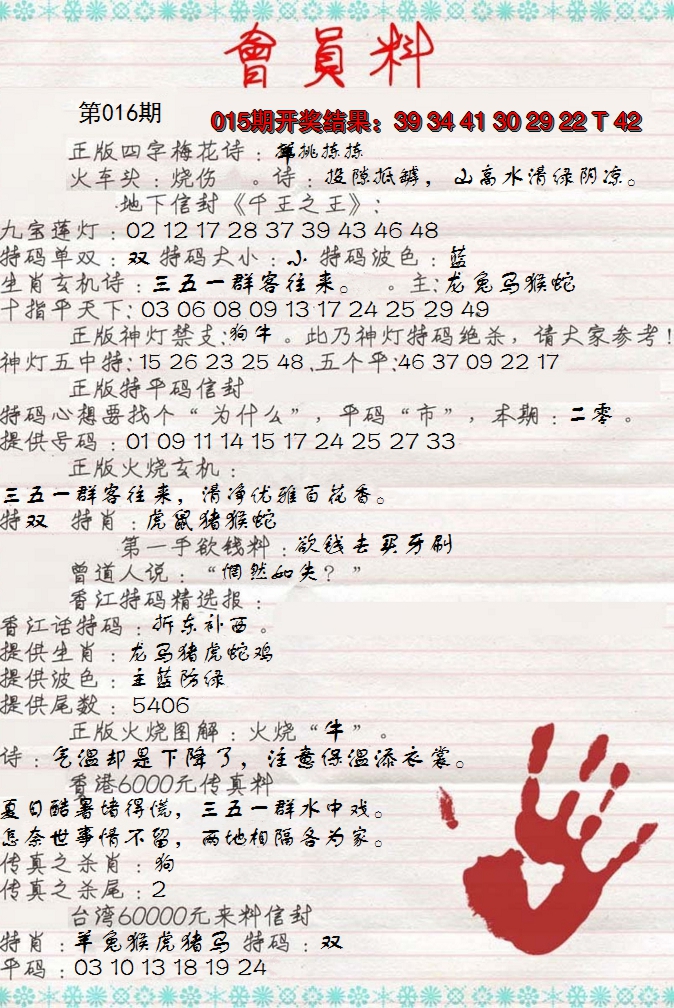 會員料
第016期
015期开奖结果：39 34 41 30 29 22 T 42
正版四字梅花诗：挑拣拣
火车头：烧伤 。诗：投隙抵罅，山高水滑绿阴凉。
·地下信封《千王之王》：
九宝莲灯：02 12 17 28 37 39 43 46 48
特码单双：双 特码大小：小 特码波色：蓝
生肖玄机诗：三五一群客往来。 。主：龙兔马猴蛇
十指平天下：03 06 08 09 13 17 24 25 29 49
正版神灯禁支：狗牛。此乃神灯特码绝杀，请大家参考！
神灯五中特：15 26 23 25 48 .五个平：46 37 09 22 17
正版特平码信封
特码心想要找个“为什么”，平码“市”，本期：二零。
提供号码：01 09 11 14 15 17 24 25 27 33
正版火烧玄机：
三五一群客往来，清净优雅百花香。
特双 特肖：虎鼠猪猴蛇
第一手欲钱料：欲钱去买牙刷
曾道人说：“惘然如失？”
香江特码精选报：
香江话特码：拆东补西。
提供生肖：龙马猪虎蛇鸡
提供波色：主蓝防绿
提供尾数：5406
正版火烧图解：火烧“牛”。
诗：气温却是下降了，注意保温添衣裳。
香港6000元传真料
夏日酷暑堵得慌，三五一群水中戏。
怎奈世事情不留，两地相隔各为家。
传真之杀肖：狗
传真之杀尾：2
台湾60000元来料信封
特肖：羊兔猴虎猪马 特码：双
平码：03 10 13 18 19 24